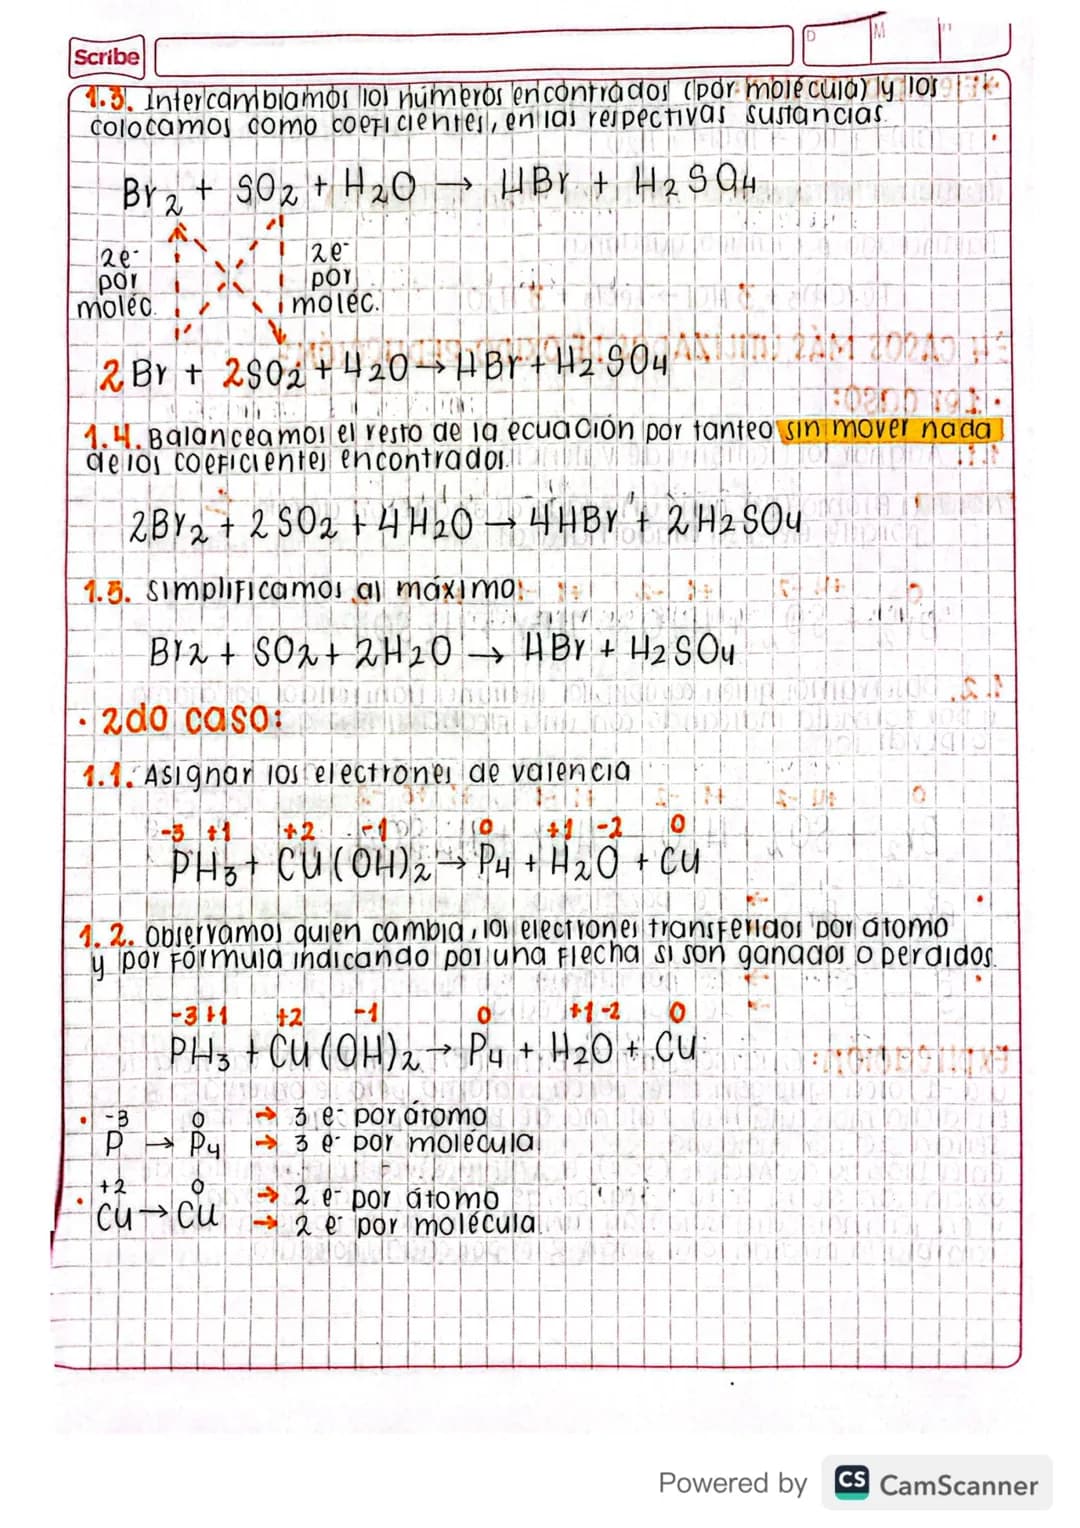 Scribe
D
M
1.3. Intercambiamos los números encontrados (por molécula) y los
colocamos como coeficientes, en las respectivas sustancias.
Br2 + SO2 + H2O → HBr + H2SO4
2e-
por
moléc.
2e-
por
moléc.
2Br + 2SO2 + H2O → HBr + H2SO4
1.4. Balanceamos el resto de la ecuación por tanteo sin mover nada
de los coeficientes encontrados.
2Br2 + 2SO2 + 4H2O → 4HBr + 2H2SO4
1.5. Simplificamos al máximo:
Br2 + SO2 + 2H2O → HBr + H2SO4
• 2do caso:
1.1. Asignar los electrones de valencia
-3 +1 +2 -1 0 +1 -2 0
PH3 + Cu(OH)2 → P4 + H2O + Cu
1.2. Observamos quien cambia, los electrones transferidos por átomo
y por fórmula indicando por una flecha si son ganados o perdidos.
-3 +1 +2 -1 0 +1 -2 0
PH3 + Cu(OH)2 → P4 + H2O + Cu
-3 0 → 3 e- por átomo
• P → P4 → 3 e- por molécula
+2 0 → 2 e- por átomo
• Cu → Cu → 2 e- por molécula.
Powered by CS CamScanner